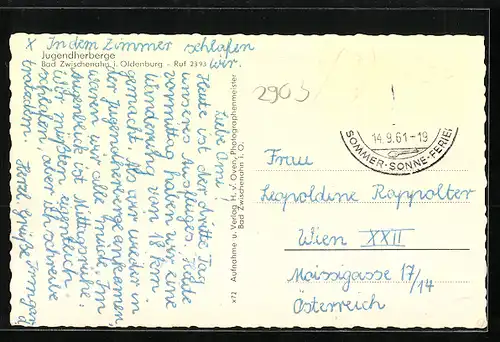 x In dem Zimmer schlafen
wir.
Jugendherberge
Bad Zwischenahn i. Oldenburg - Ruf 2393
Liebe Omi!
Heute ist der dritte Tag
unseres Ausfluges. Heute
vormittag haben wir eine
Wanderung von 18 km
gemacht. Als wir wieder in
der Jugendherberge ankamen,
waren wir alle müde. Im
Augenblick ist Mittagsruhe.
Wir müßten eigentlich
schlafen, aber ich schreibe
trotzdem. Herzl. Grüße Irmgard
x72 Aufnahme u. Verlag H. v. Oven, Photographenmeister
Bad Zwischenahn i. O.
2905
14.9.61-19
SOMMER-SONNE-FERIEN
Frau
Leopoldine Rappolter
Wien XXII
Maissigasse 17/14
Österreich